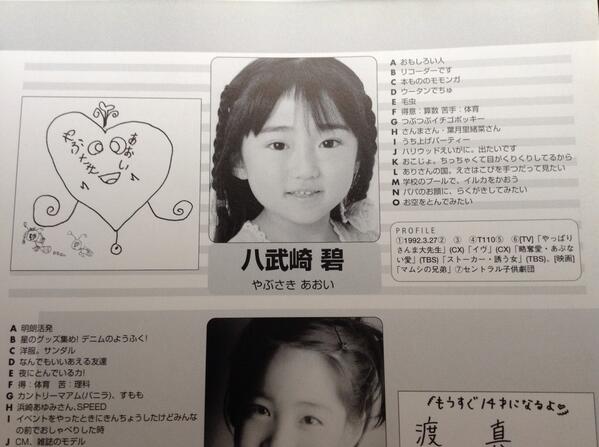 A おもしろい人
B リコーダーです
C 本もののモモンガ
D ウータンでちゅ
E 毛虫
F 得意：算数 苦手：体育
G つぶつぶイチゴポッキー
H さんまさん・葉月里緒菜さん
I うち上げパーティー
J ハリウッドえいがに。出たいです
K おこじょ。ちっちゃくて目がくりくりしてるから
L ありさんの国。えさはこびを手つだって見たい
M 学校のプールで、イルカをかおう
N パパのお頭に、らくがきしてみたい
O お空をとんでみたい
やぶさき
あおい
八武崎 碧
やぶさき あおい
PROFILE
①1992.3.27② ③ ④T110⑤ ⑥[TV]「やっぱり
さんま大先生」(CX)「イヴ」(CX)「略奪愛・あぶな
い愛」(TBS)「ストーカー・誘う女」(TBS)、[映画]
「マムシの兄弟」⑦セントラル子供劇団
A 明朗活発
B 星のグッズ集め! デニムのようふく!
C 洋服。サンダル
D なんでもいいあえる友達
E 夜にとんでいる力!
F 得：体育 苦：理科
G カントリーマアム(バニラ)、すもも
H 浜崎あゆみさん、SPEED
I イベントをやったときにきんちょうしたけどみんな
の前でおしゃべりした時
J CM、雑誌のモデル
もうすぐ14才になるよ
渡 真